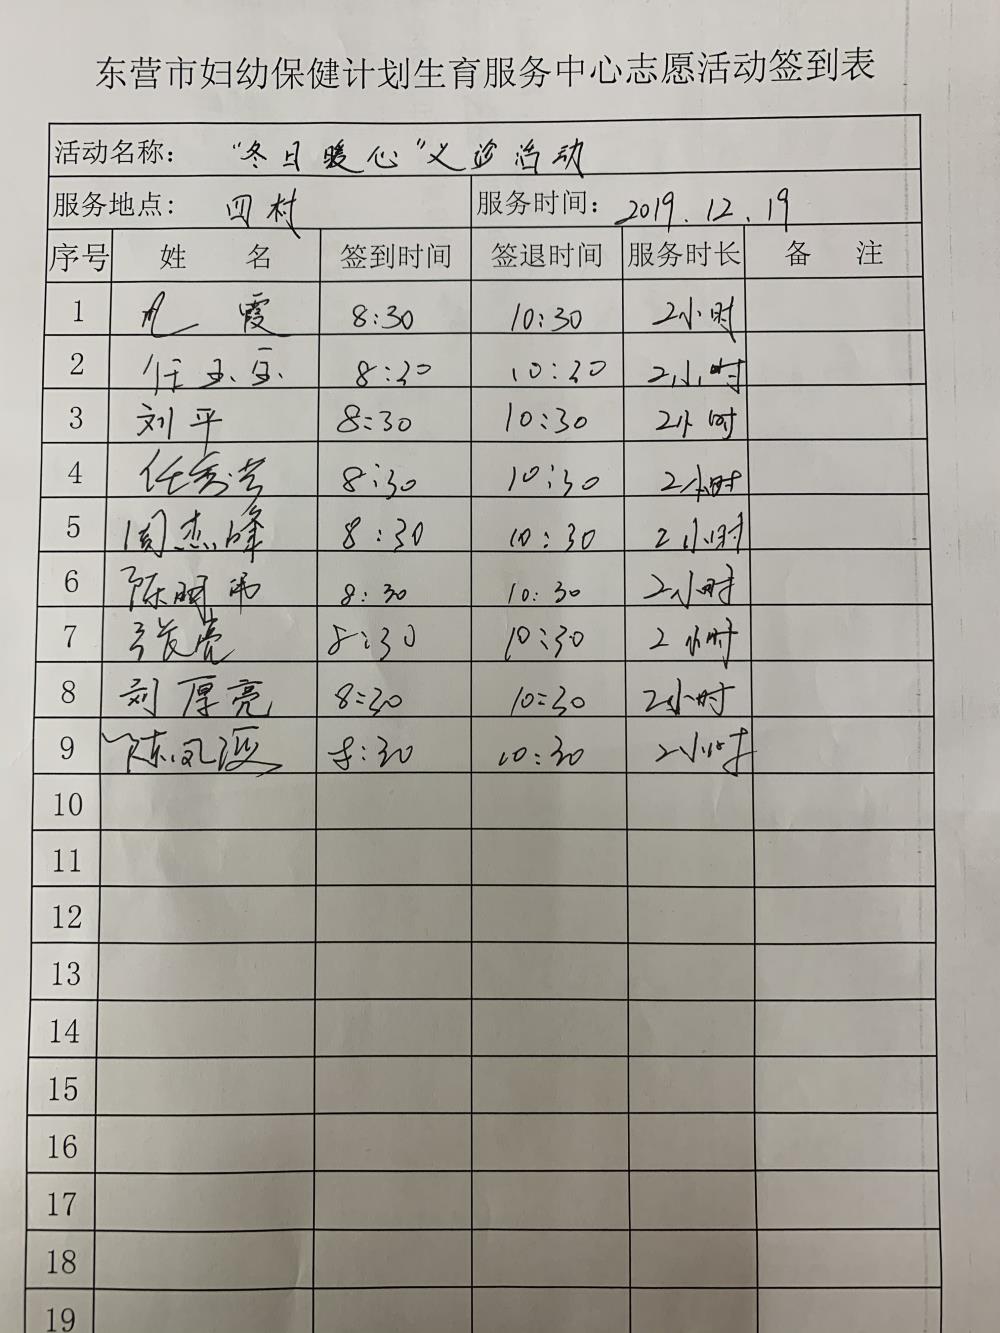 东营市妇幼保健计划生育服务中心志愿活动签到表
活动名称： “冬日暖心”义诊活动
服务地点： 四村 服务时间： 2019.12.19
序号 姓 名 签到时间 签退时间 服务时长 备 注
1 霞 8:30 10:30 2小时
2 任玉玉 8:30 10:30 2小时
3 刘平 8:30 10:30 2小时
4 任秀芸 8:30 10:30 2小时
5 周杰峰 8:30 10:30 2小时
6 陈明 8:30 10:30 2小时
7 张亮 8:30 10:30 2小时
8 刘厚亮 8:30 10:30 2小时
9 陈凤 8:30 10:30 2小时
10
11
12
13
14
15
16
17
18
19